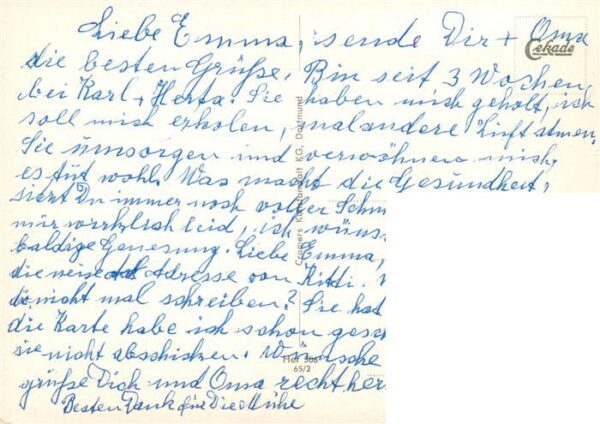 Liebe Emma, sende Dir + Oma
die besten Grüße. Bin seit 3 Wochen
bei Karl + Herta. Sie haben mich geholt, ich
soll mich erholen, mal andere Luft atmen.
Sie umsorgen und verwöhnen mich,
es tut wohl. Was macht die Gesundheit,
Du immer noch voller Schm
mir wirklich leid, ich wüns
baldige Genesung. Liebe Emma,
die Adresse von Kitti.
nicht mal schreiben? Sie hat
die Karte habe ich schon gesc
sie nicht abschicken. Wünsche
grüße Dich und Oma recht her
Besten Dank für Die Mühe
Cekade
Cramers Kunstanstalt KG, Dortmund
Hef 306
65/2